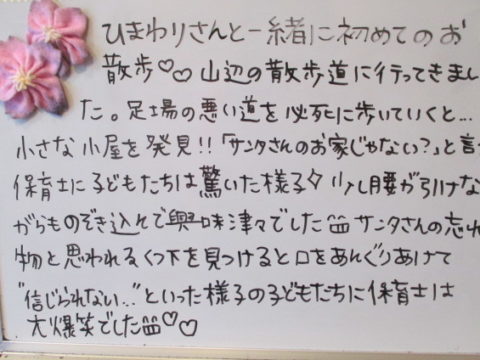 ひまわりさんと一緒に初めてのお
散歩♡♡山辺の散歩道に行ってきまし
た。足場の悪い道を必死に歩いていくと…
小さな小屋を発見!!「サンタさんのお家じゃない?」と言う
保育士に子どもたちは驚いた様子 少し腰が引けな
がらものぞき込んで興味津々でした サンタさんの忘れ
物と思われるくつ下を見つけると口をあんぐりあけて
"信じられない…"といった様子の子どもたちに保育士は
大爆笑でした♡♡